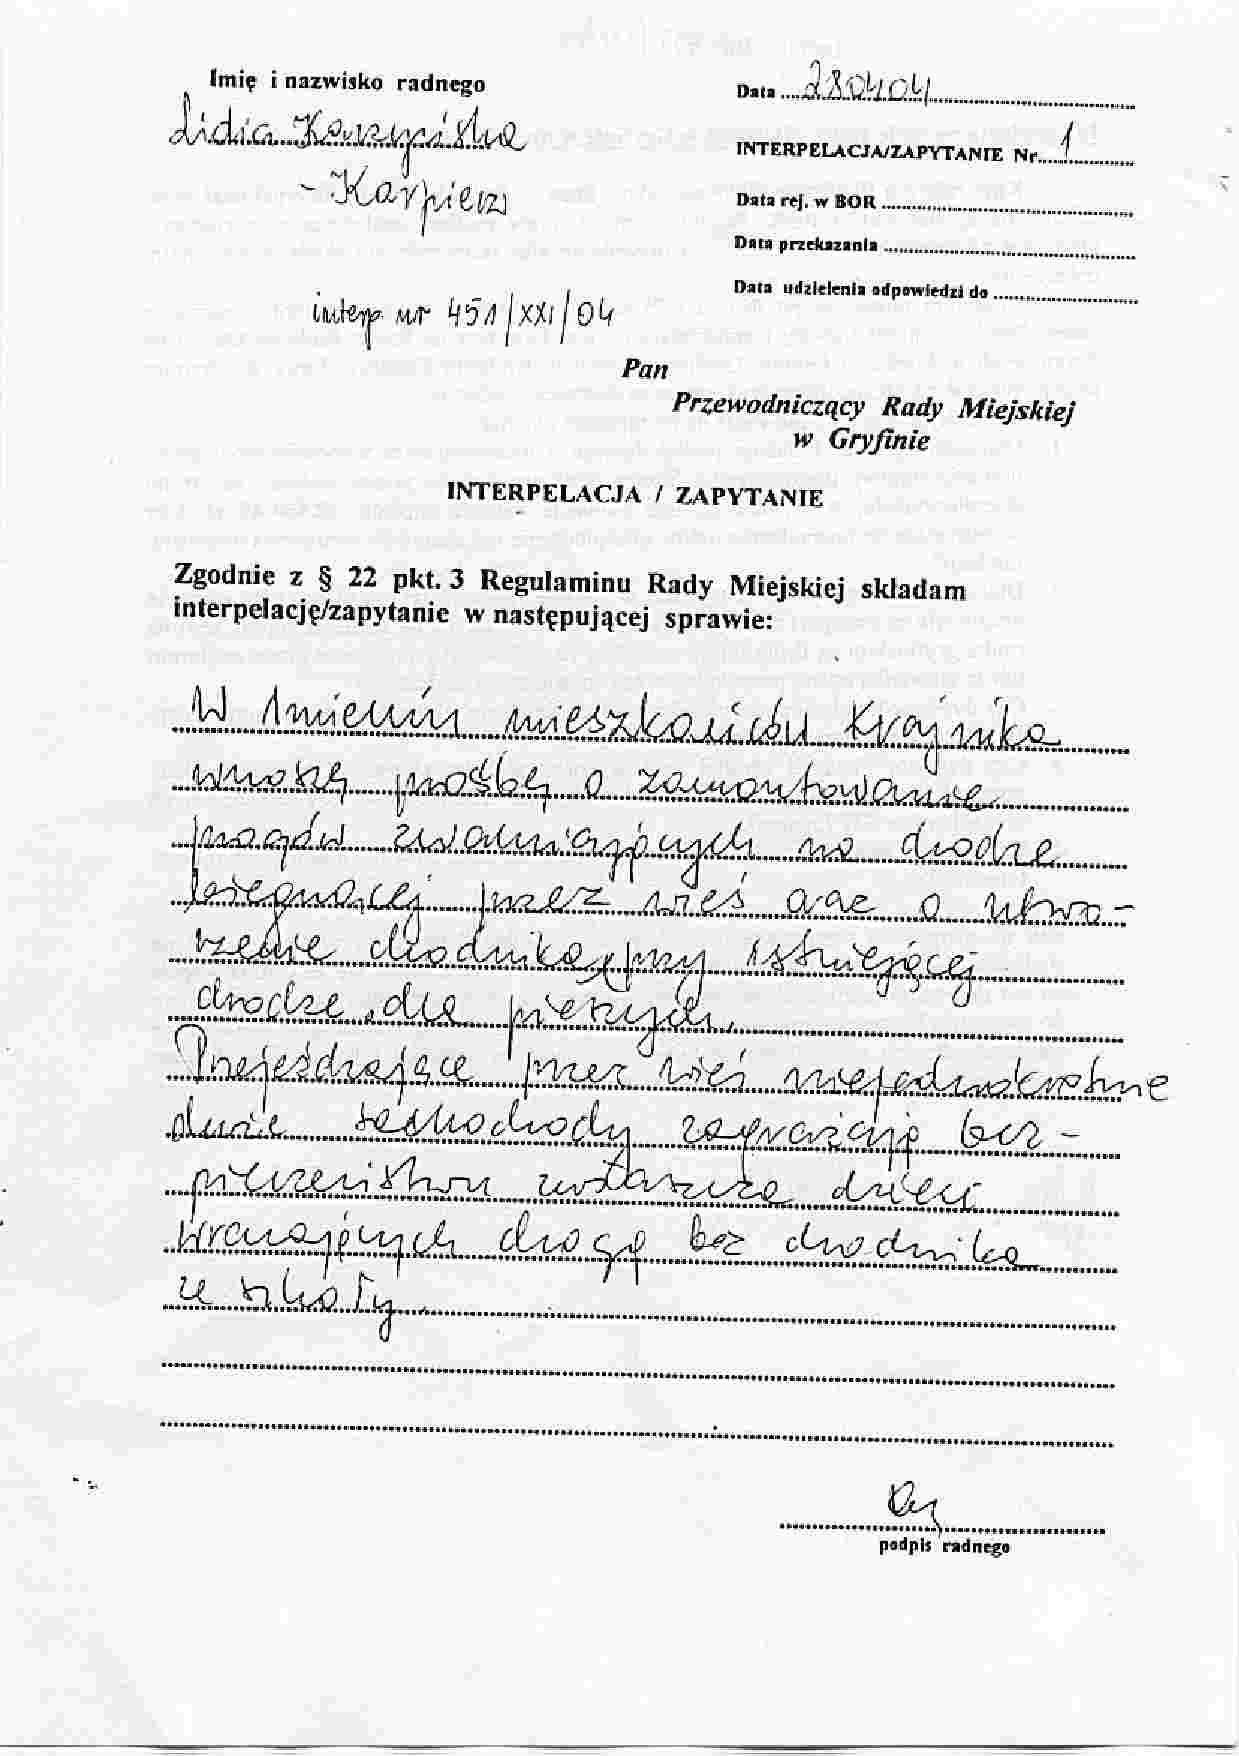 Imię i nazwisko radnego
Lidia Karzyńska
- Karpierz
Data ....280404....
INTERPELACJA/ZAPYTANIE Nr....1....
Data rej. w BOR ....
Data przekazania ....
Data udzielenia odpowiedzi do ....
interp. nr 451/XXI/04
Pan
Przewodniczący Rady Miejskiej
w Gryfinie
INTERPELACJA / ZAPYTANIE
Zgodnie z § 22 pkt. 3 Regulaminu Rady Miejskiej składam
interpelację/zapytanie w następującej sprawie:
W imieniu mieszkańców Krajnika
wnoszę prośbę o zamontowanie
progów zwalniających na drodze
biegnącej przez wieś oraz o utwo-
rzenie chodnika przy istniejącej
drodze dla pieszych.
Przejeżdżające przez wieś niejednokrotnie
duże samochody zagrażają bez-
pieczeństwu zwłaszcza dzieci
wracających drogą bez chodnika
ze szkoły.
podpis radnego